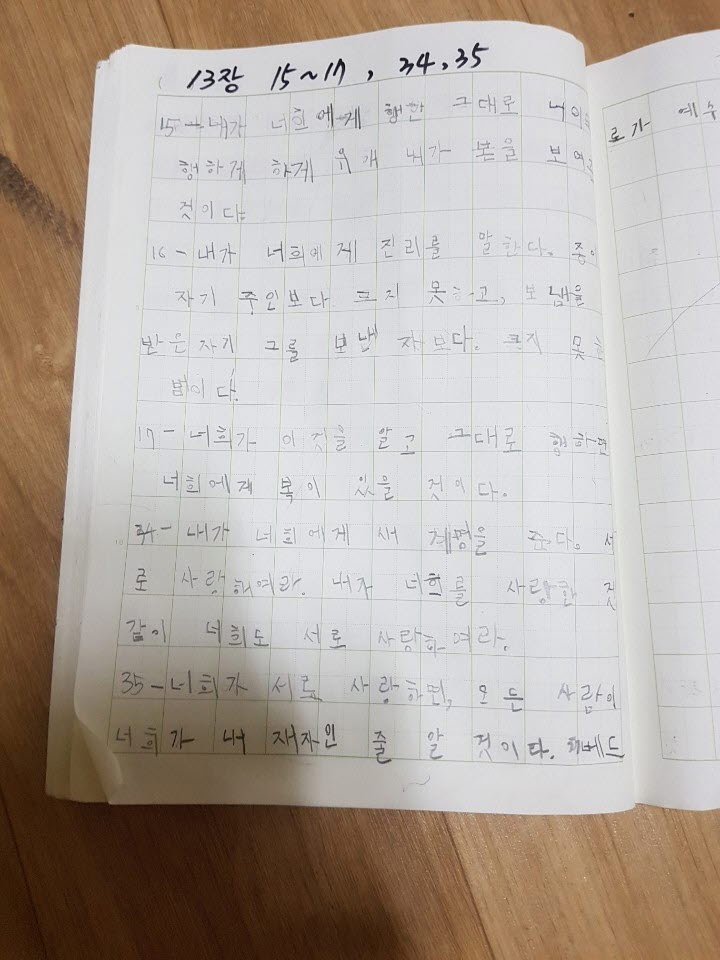 13장 15~17, 34, 35
15-내가 너희에게 행한 그대로 너희
행하게 하게 위해 내가 본을 보여준
것이다
16-내가 너희에게 진리를 말한다. 종이
자기 주인보다 크지 못하고, 보냄을
받은자가 그를 보낸 자보다. 크지 못하
법이다.
17-너희가 이것을 알고 그대로 행하면
너희에게 복이 있을 것이다.
34-내가 너희에게 새 계명을 준다. 서
로 사랑하여라. 내가 너희를 사랑한 것
같이 너희도 서로 사랑하여라.
35-너희가 서로 사랑하면, 모든 사람이
너희가 내 제자인 줄 알 것이다. 베드
로가 예수